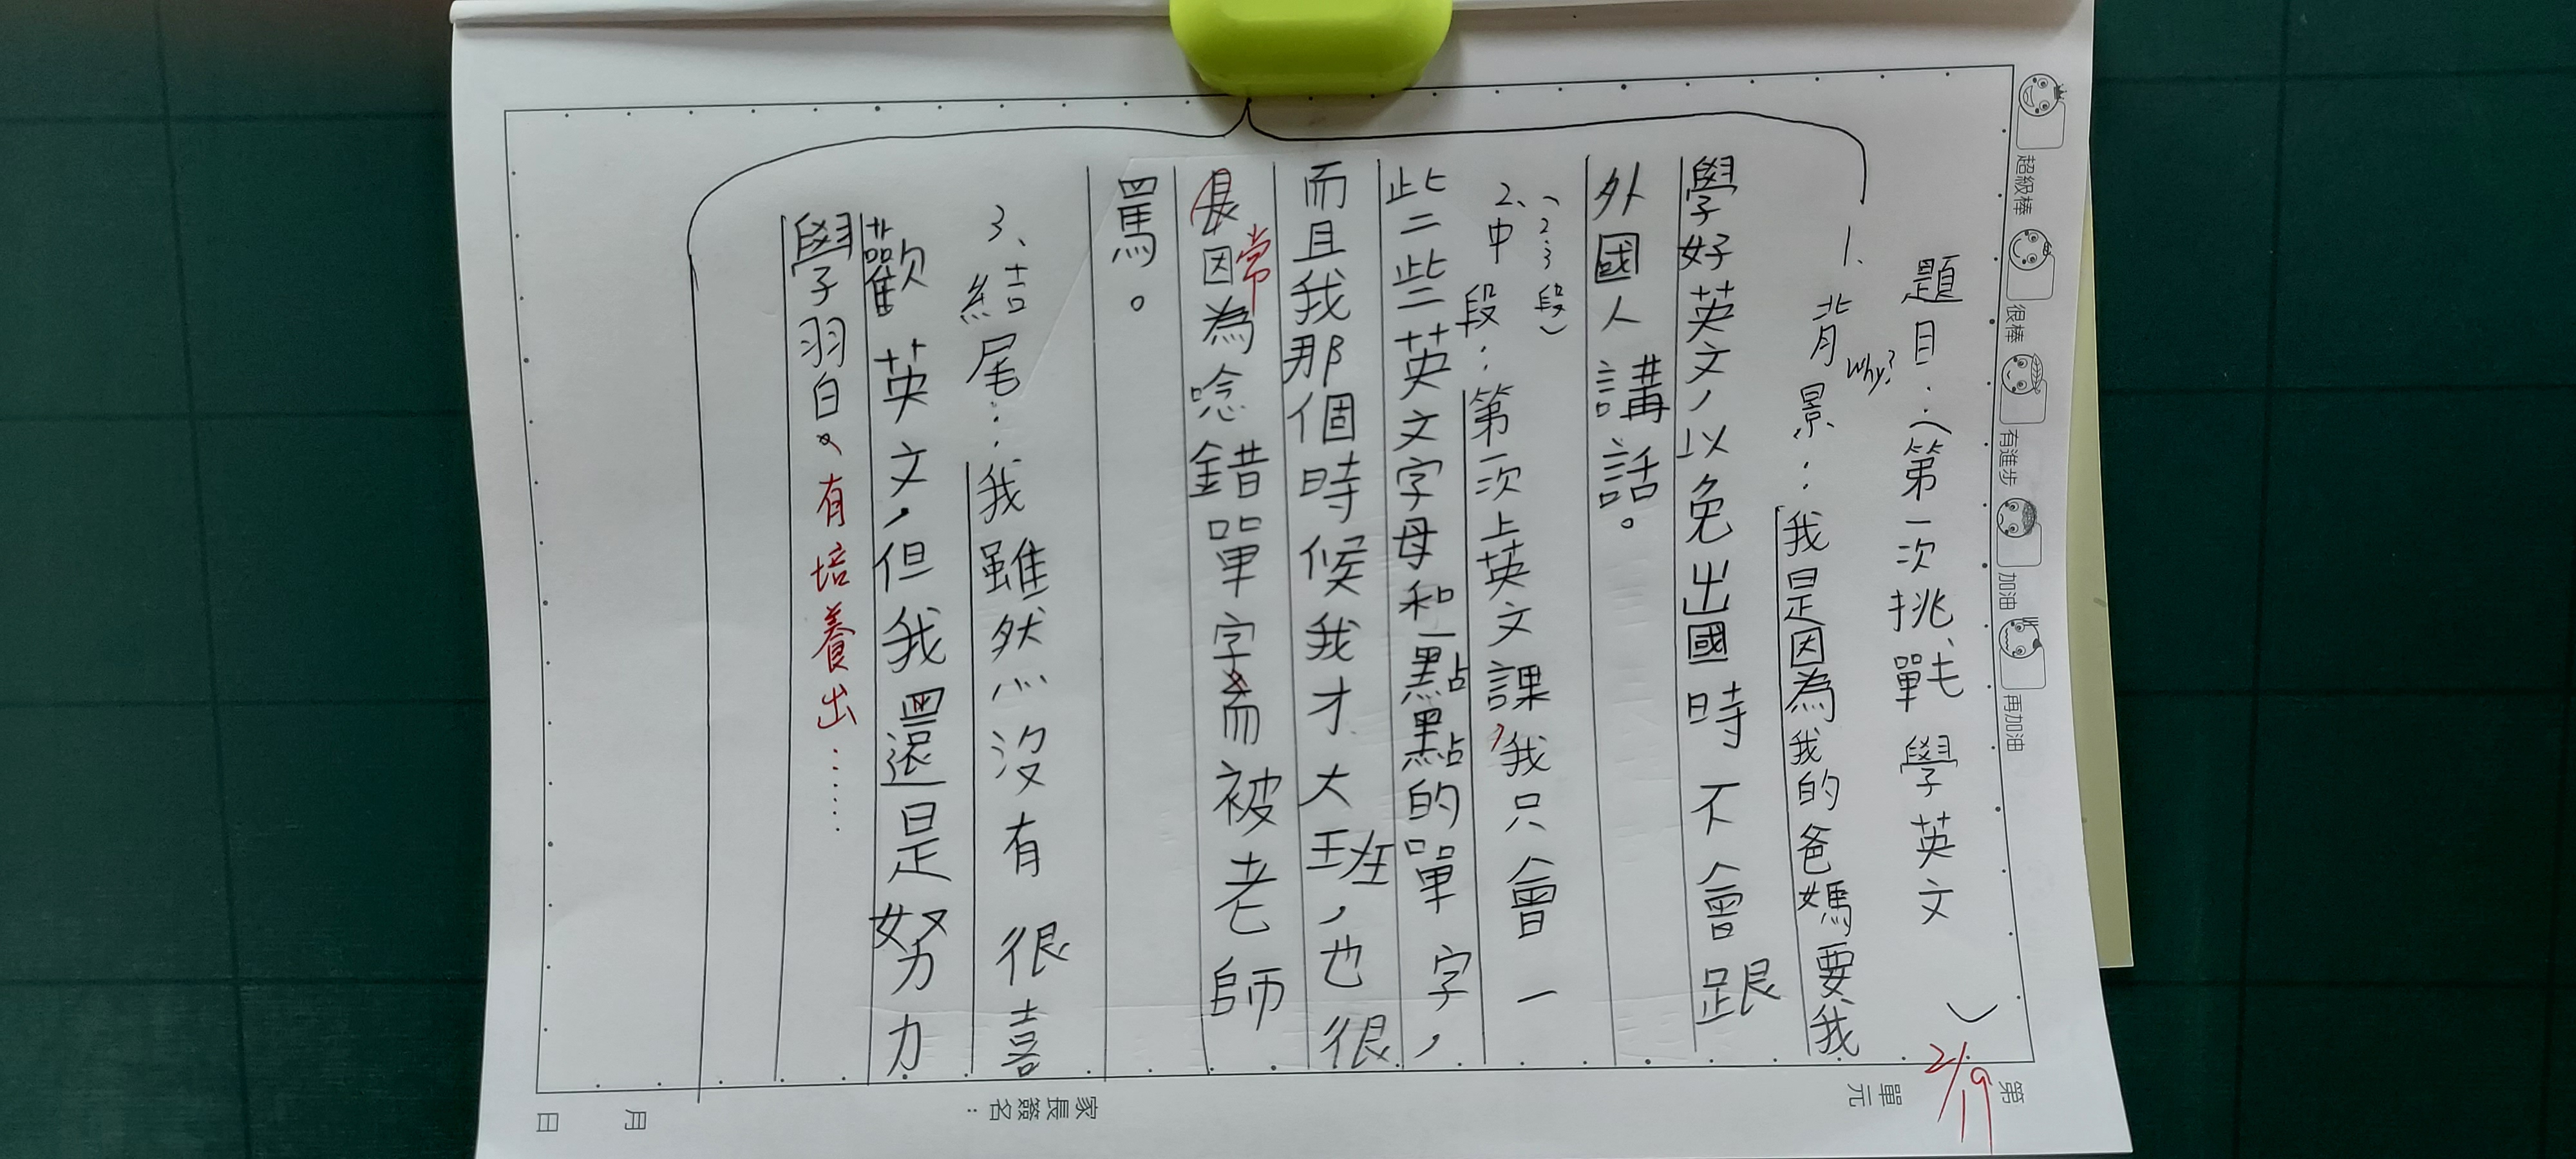 題目：（第一次挑戰學英文）
1、背景：我是因為我的爸媽要我
Why?
學好英文，以免出國時不會跟
外國人講話。
（2、3段）
2、中段：第一次上英文課，我只會一
些些英文字母和一點點的單字，
而且我那個時候我才大班，也很
常
因為唸錯單字而被老師
罵。
3、結尾：我雖然沒有很喜
歡英文，但我還是努力
學習。有培養出……
2/19
超級棒
很棒
有進步
加油
再加油
第
單元
家長簽名：
月
日